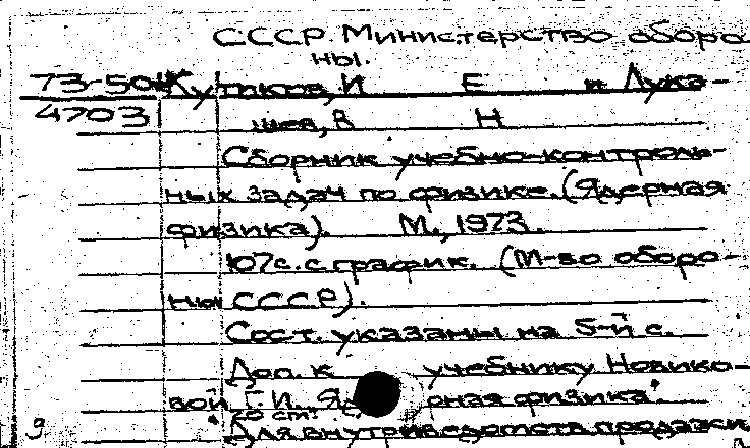 СССР. Министерство оборо
ны.
73-504 Кутиков, И Е и Лука-
4703
шев, В Н
Сборник учебно-контроль-
ных задач по физике. (Ядерная
физика). М., 1973.
107с. с график. (М-во оборо-
ны СССР).
Сост. указаны на 5-й с.
Доп. к учебнику Новико-
вой Г.И. Ядерная физика.
20 см.
Для внутриведомств продажи
9